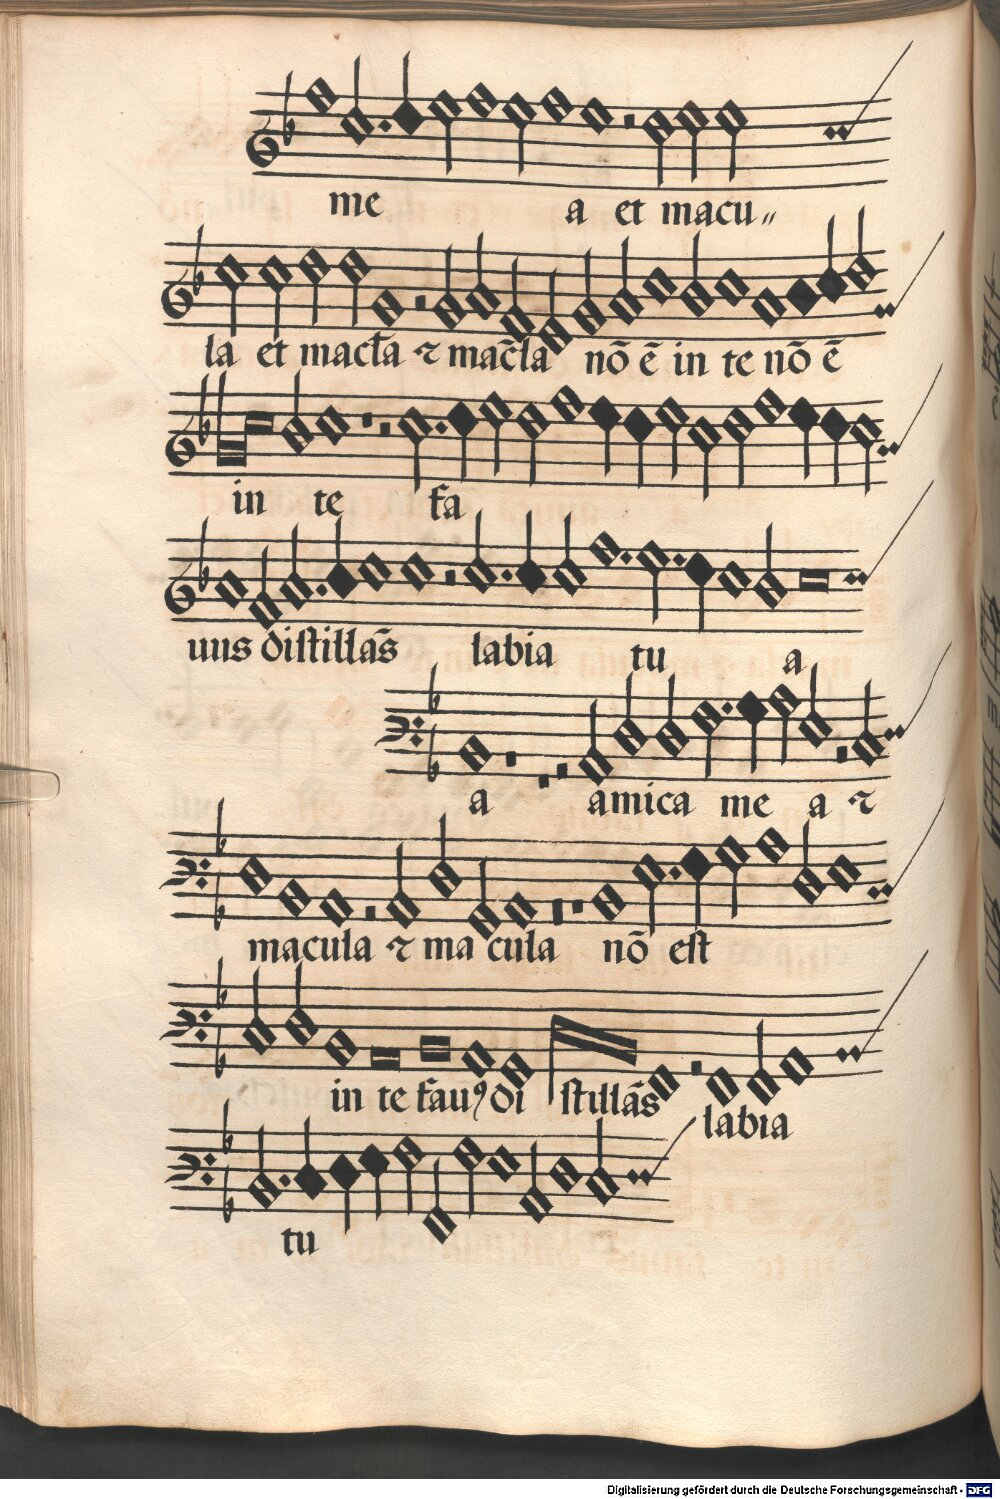 me a et macu〃
la et mac̄la ⁊ mac̄la nō ē in te nō ē
in te fa
uus distillās labia tu a
a amica me a ⁊
macula ⁊ ma cula nō est
in te fauꝰ di stillās labia
tu
Digitalisierung gefördert durch die Deutsche Forschungsgemeinschaft - DFG